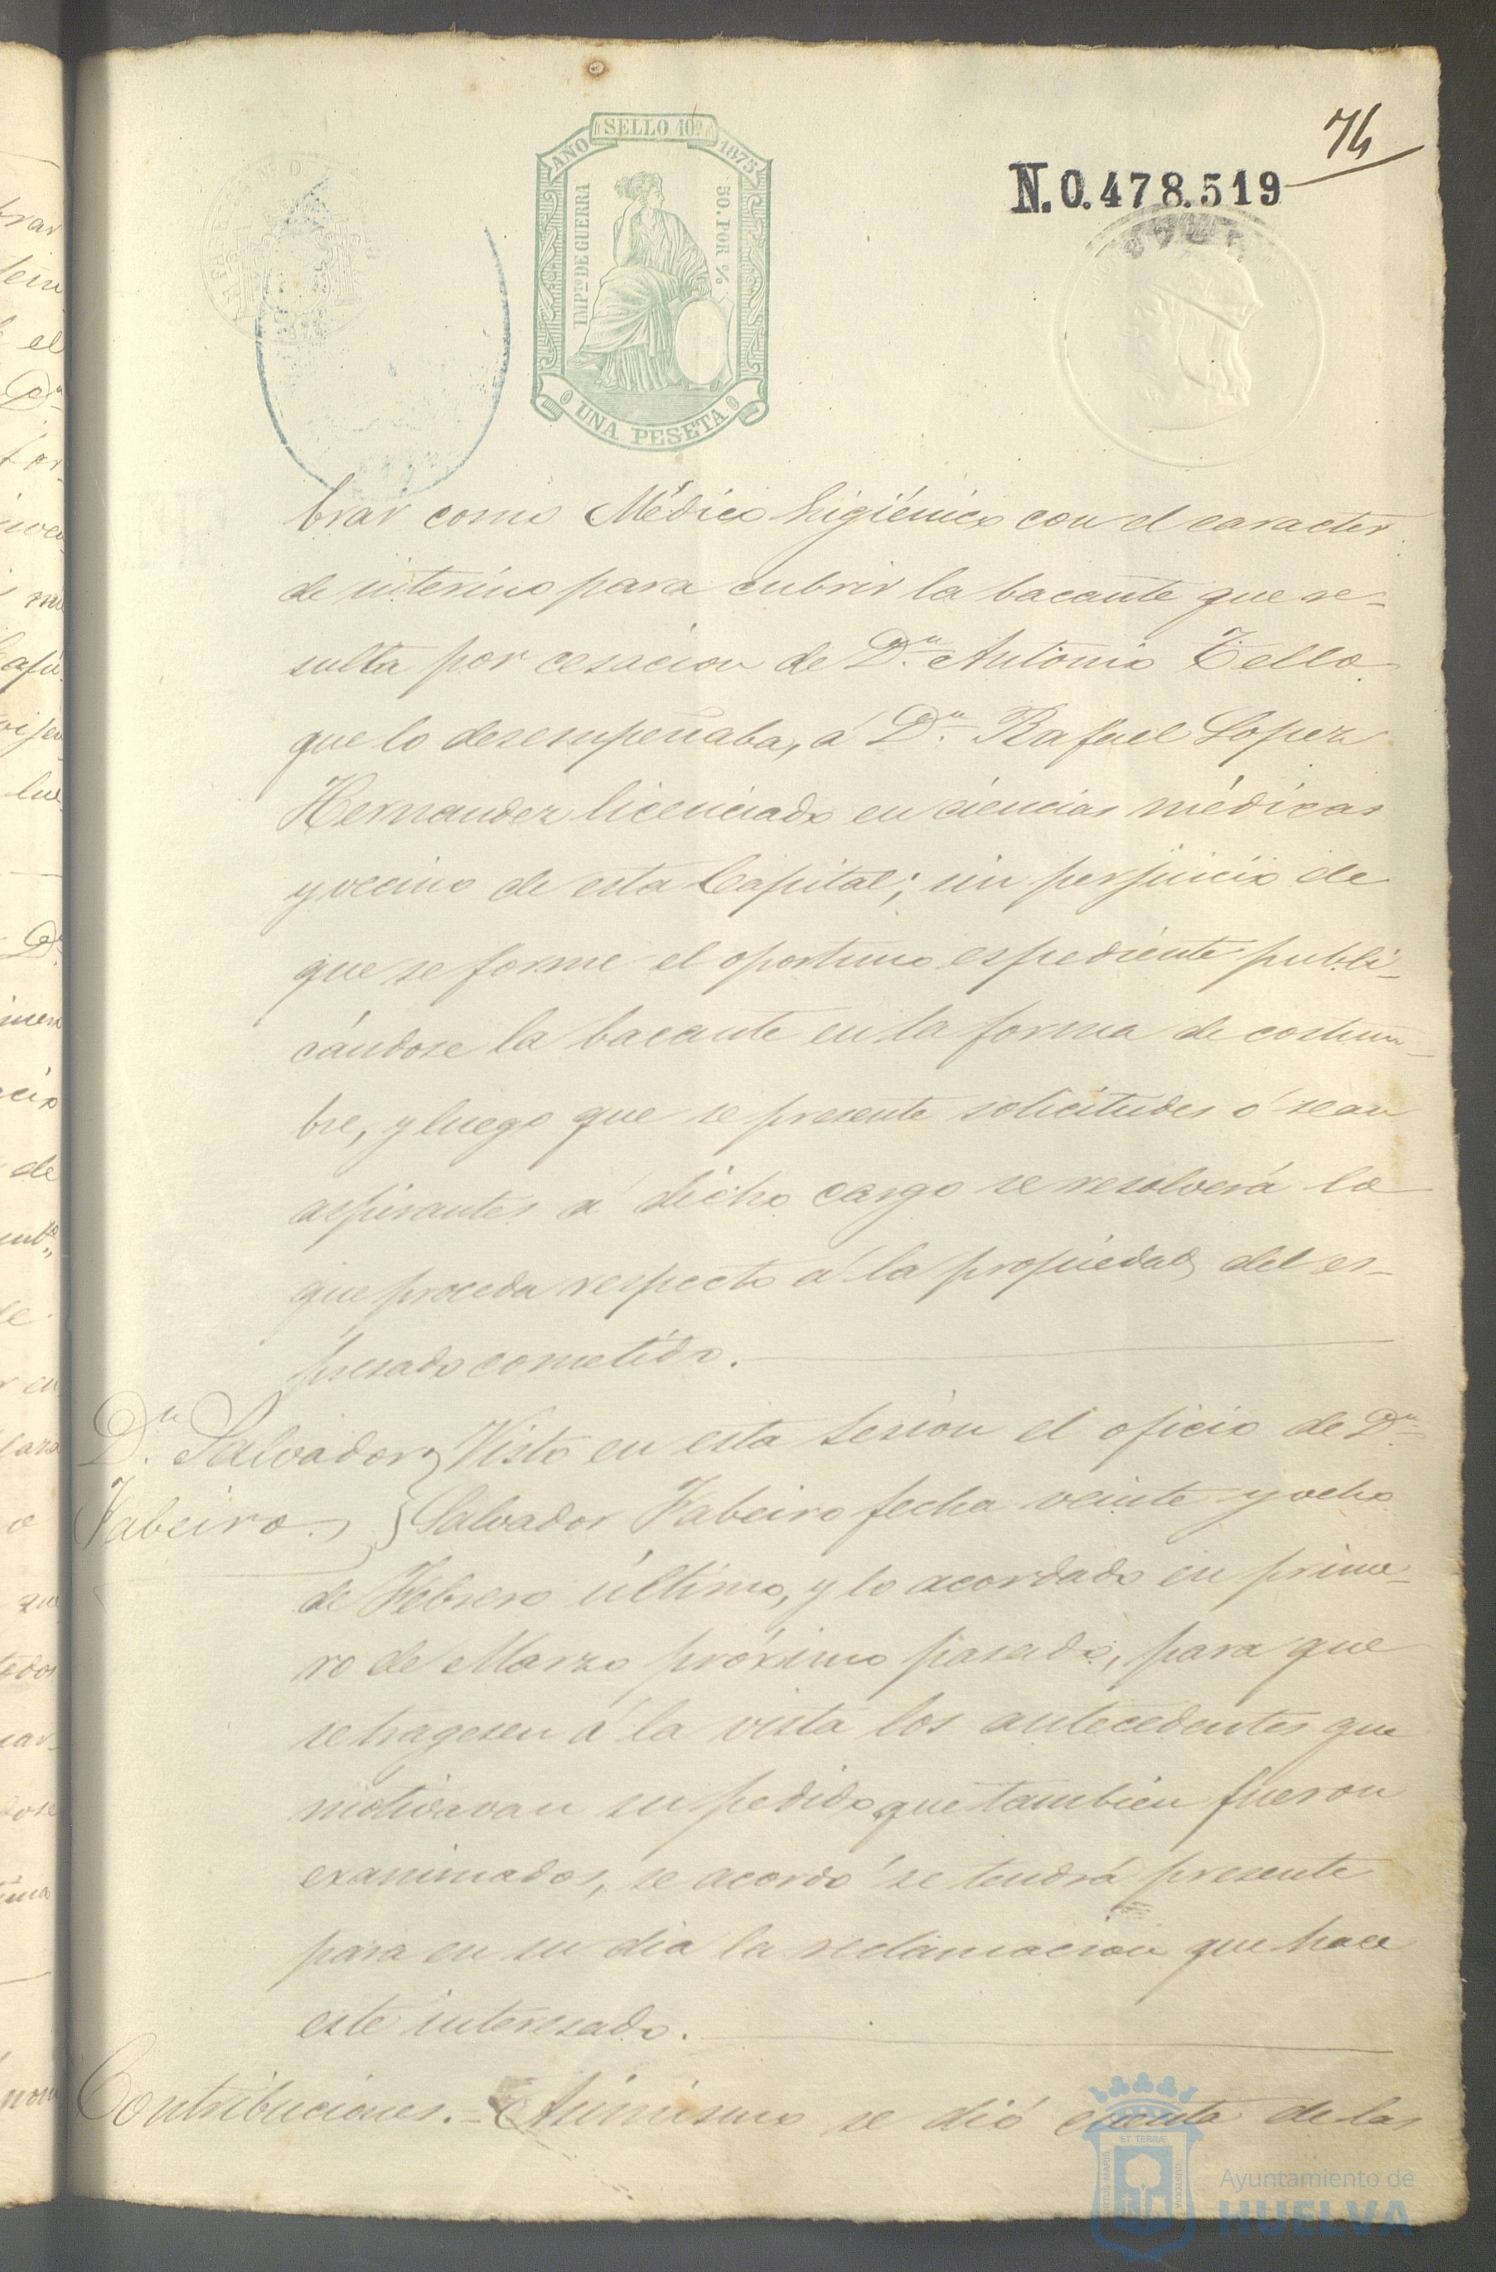 74
AÑO SELLO 10º 1875
IMPTO DE GUERRA
50. POR %
UNA PESETA
N.0.478.519
brar como Médico higiénico con el caracter
de interino para cubrir la bacante que re-
sulta por cesacion de Dn. Antonio Tello
que lo desempeñaba, á Dn. Rafael Lopez
Hernandez licenciado en ciencias médicas
y vecino de esta Capital; sin perjuicio de
que se forme el oportuno espediente publi-
cándose la bacante en la forma de costum-
bre, y luego que se presente solicitudes ó sean
aspirantes a dicho cargo se resolverá lo
que proceda respecto á la propiedad del es-
presado cometido.
Dn. Salvador
Fabeiro.
Visto en esta sesion el oficio de Dn.
Salvador Fabeiro fecha veinte y ocho
de Febrero último, y lo acordado en prime-
ro de Marzo próximo pasado, para que
se tragesen á la vista los antecedentes que
motivavan su pedido que tambien fueron
examinados, se acordó se tendrá presente
para en su dia la reclamacion que hace
este interesado.
Contribuciones. - Asimismo se dió cuenta de las
Ayuntamiento de
HUELVA